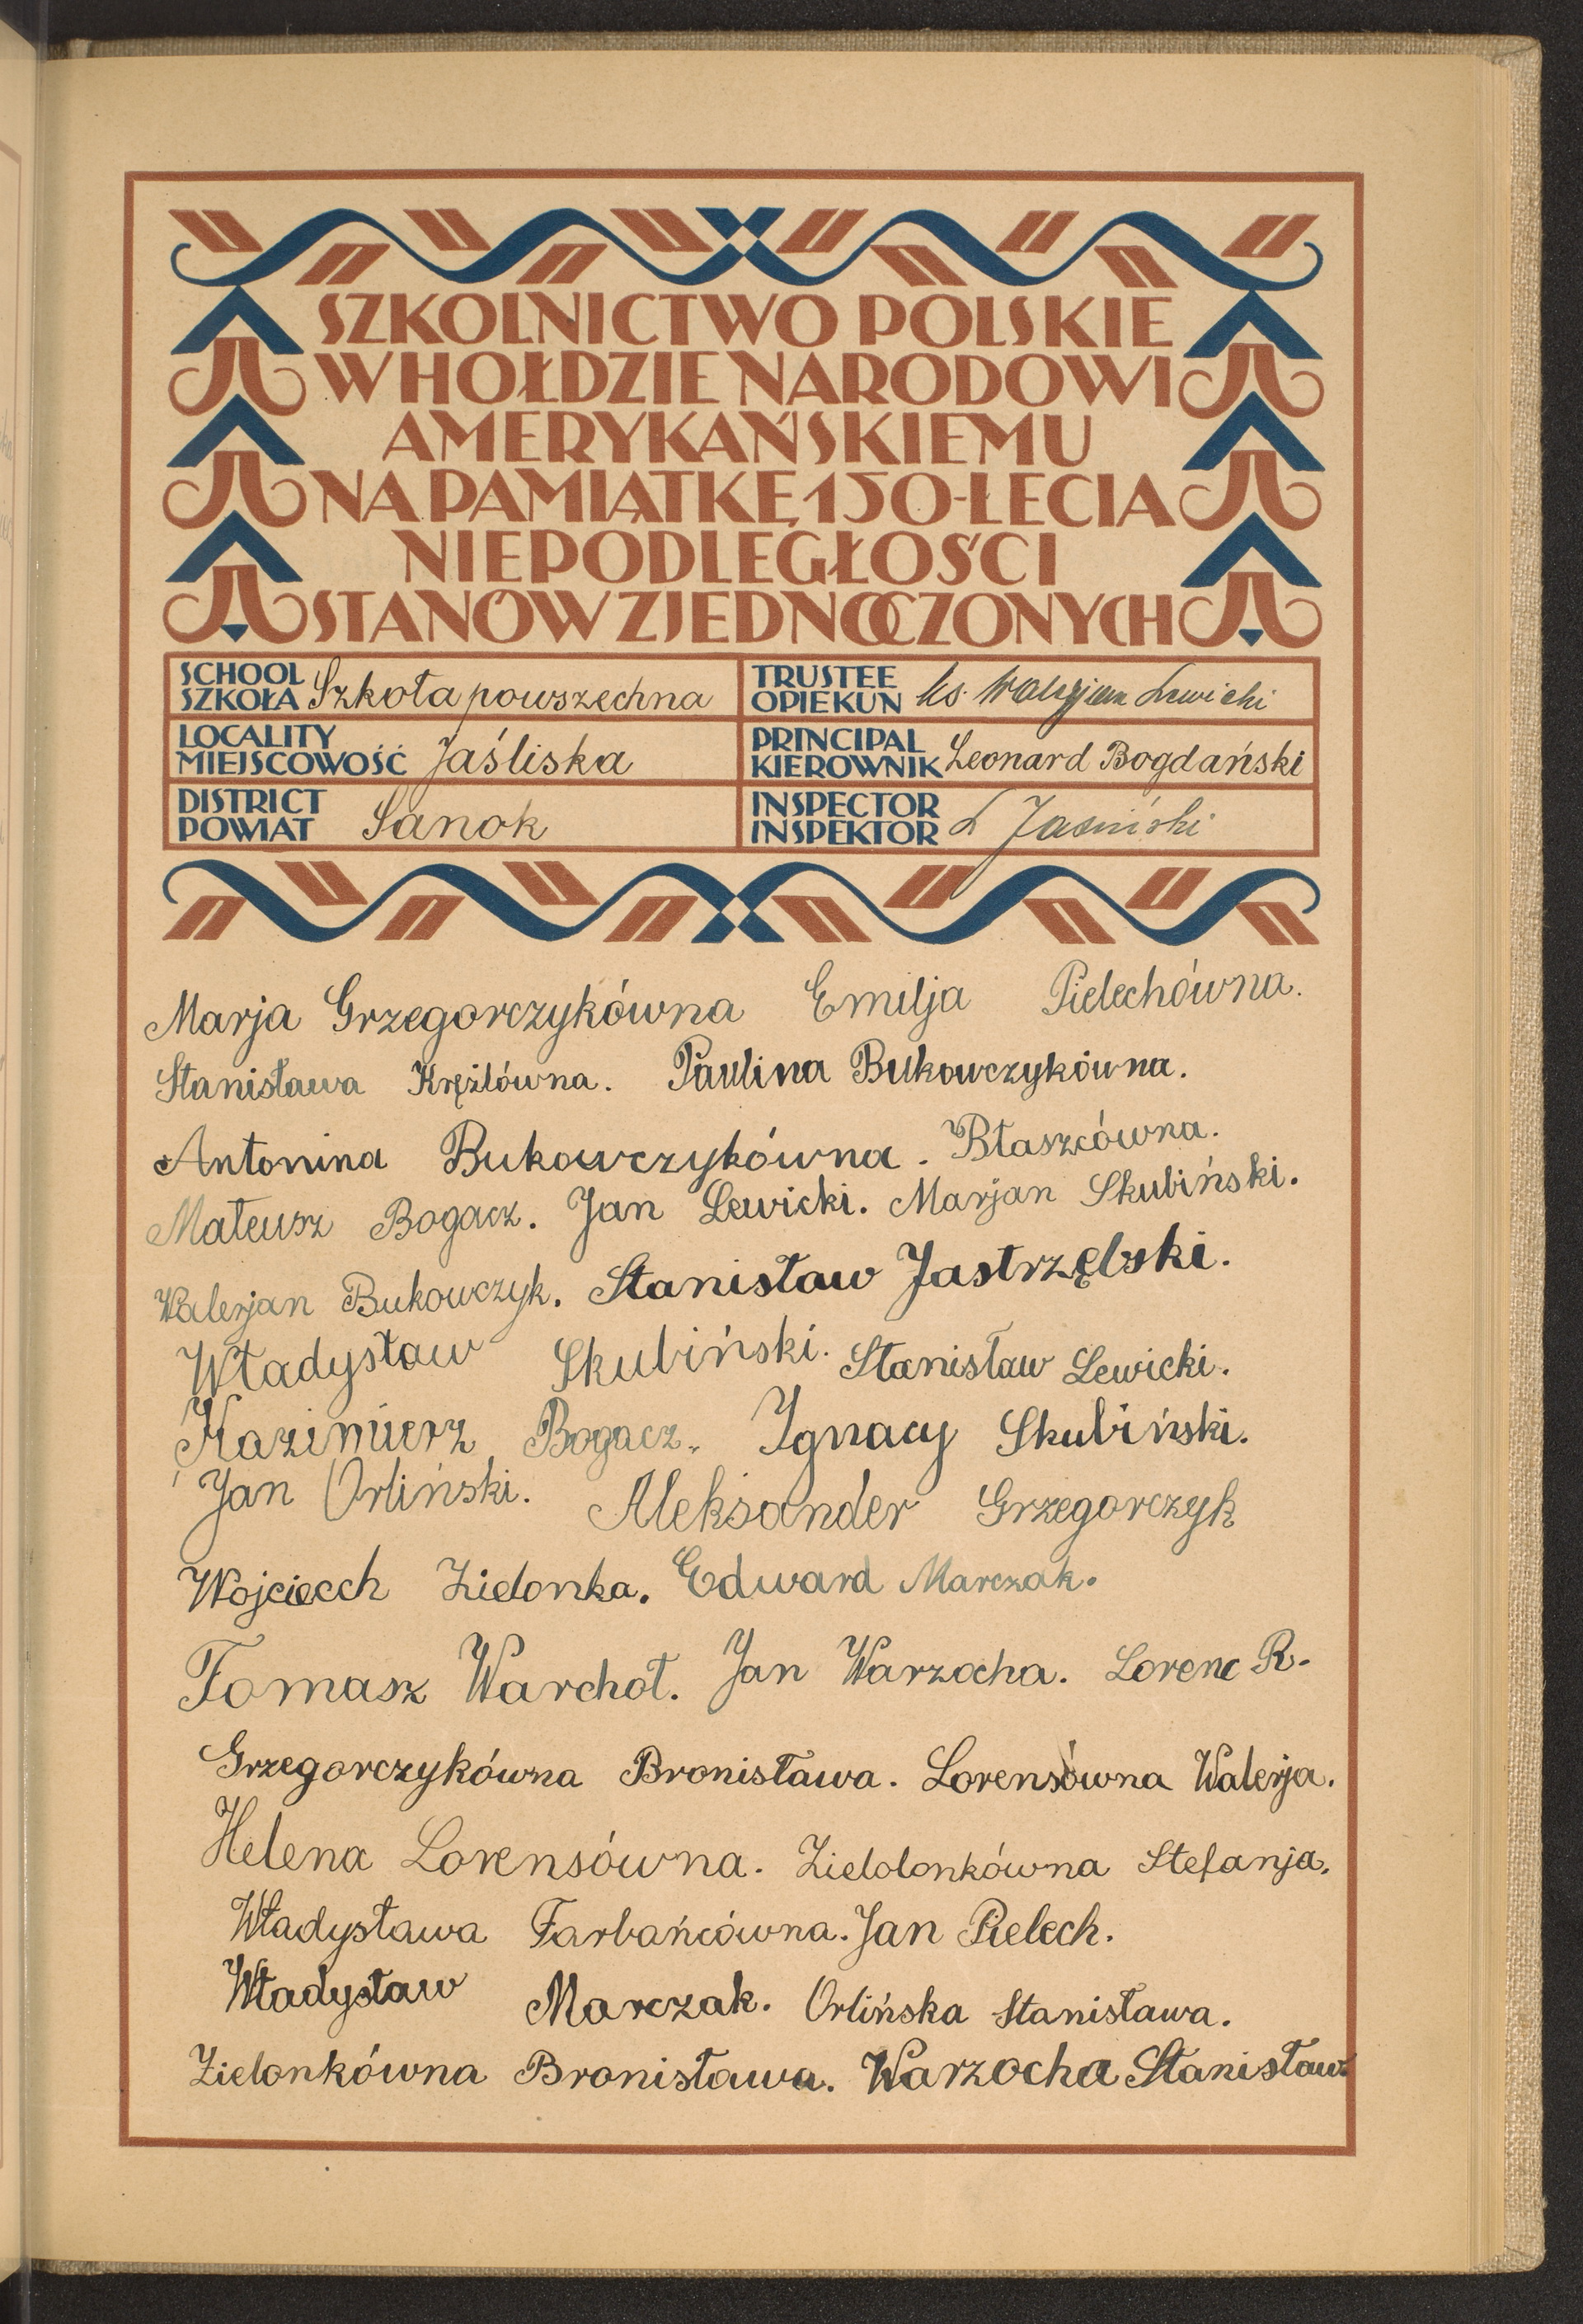 SZKOLNICTWO POLSKIE
W HOŁDZIE NARODOWI
AMERYKAŃSKIEMU
NA PAMIĄTKĘ 150-LECIA
NIEPODLEGŁOŚCI
STANÓW ZJEDNOCZONYCH
SCHOOL
SZKOŁA Szkoła powszechna
LOCALITY
MIEJSCOWOŚĆ Jaśliska
DISTRICT
POWIAT Sanok
TRUSTEE
OPIEKUN ks. Walerjan Lewicki
PRINCIPAL
KIEROWNIK Leonard Bogdański
INSPECTOR
INSPEKTOR L Jasiński
Marja Grzegorczykówna Emilja Pielechówna.
Stanisława Krężlówna. Paulina Bukowczykówna.
Antonina Bukowczykówna. Błaszcówna.
Mateusz Bogacz. Jan Lewicki. Marjan Skubiński.
Walerjan Bukowczyk. Stanisław Jastrzębski.
Władysław Skubiński. Stanisław Lewicki.
Kazimierz Bogacz. Ignacy Skubiński.
Jan Orliński. Aleksander Grzegorczyk
Wojciech Zielonka. Edward Marczak.
Tomasz Warchoł. Jan Warzocha. Lorenc R.
Grzegorczykówna Bronisława. Lorensówna Walerja.
Helena Lorensówna. Zielolonkówna Stefanja.
Władysława Farbańcówna. Jan Pielech.
Władysław Marczak. Orlińska Stanisława.
Zielonkówna Bronisława. Warzocha Stanisław.